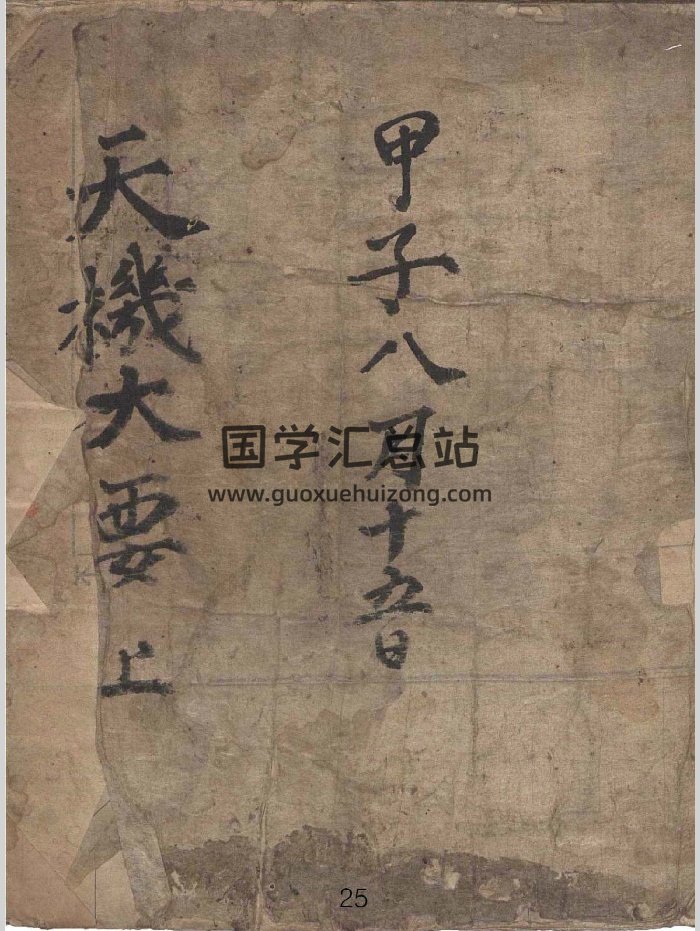 甲子八月十五日
天機大要 上
国学汇总站
www.guoxuehuizong.com
25